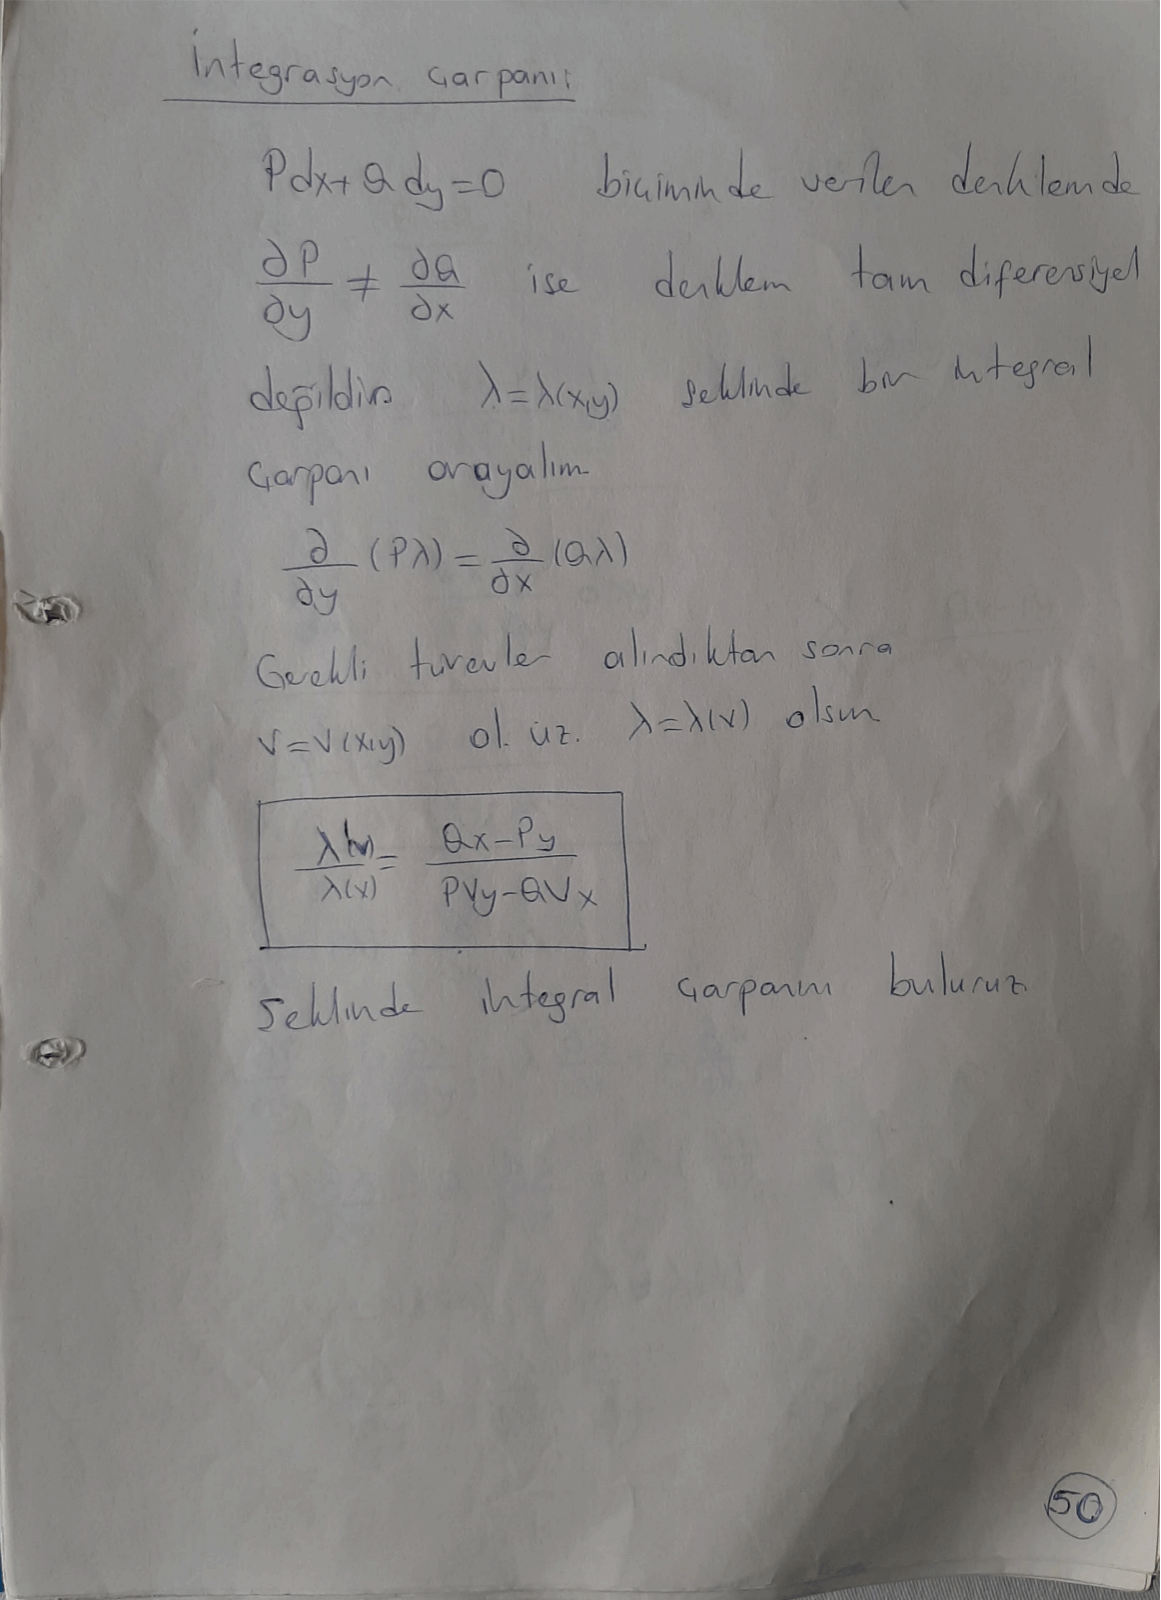 İntegrasyon Çarpanı:
Pdx+Qdy=0 biçiminde verilen denklemde
∂P/∂y ≠ ∂Q/∂x ise denklem tam diferensiyel
değildir. λ=λ(x,y) şeklinde bir integral
Çarpanı arayalım
∂/∂y (Pλ) = ∂/∂x (Qλ)
Gerekli türevler alındıktan sonra
V=V(x,y) ol. üz. λ=λ(v) olsun
λ'(v)/λ(v) = Qx-Py / PVy-QVx
Şeklinde integral çarpanını buluruz
50